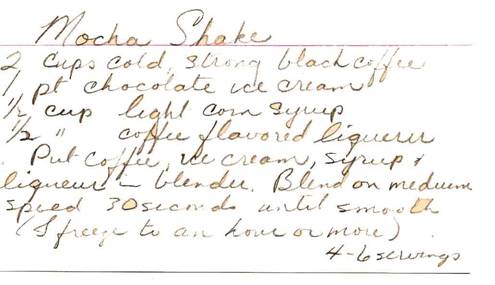 Mocha Shake
2 cups cold, strong black coffee
1 pt chocolate ice cream
1/2 cup light corn syrup
1/2 " coffee flavored liqueur
Put coffee, ice cream, syrup &
liqueur in blender. Blend on medium
speed 30 seconds until smooth
(I freeze to an hour or more)
4-6 servings